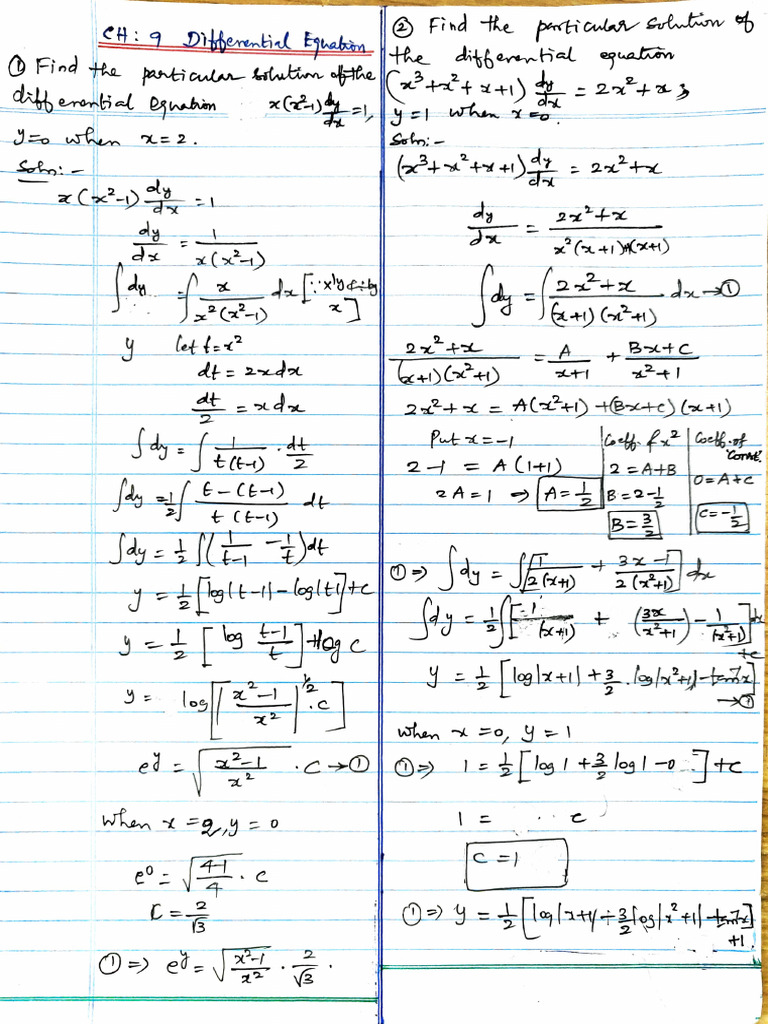 CH: 9 Differential Equation
① Find the particular solution of the
differential equation x(x²-1)dy/dx = 1,
y=0 when x = 2.
Soln:-
x(x²-1) dy/dx = 1
dy/dx = 1/(x(x²-1))
∫dy = ∫ x/(x²(x²-1)) dx [∵ x'ly & ÷ by x]
y let t = x²
dt = 2x dx
dt/2 = x dx
∫dy = ∫ 1/(t(t-1)) · dt/2
∫dy = 1/2 ∫ (t-(t-1))/(t(t-1)) dt
∫dy = 1/2 ∫(1/(t-1) - 1/t)dt
y = 1/2 [log|t-1| - log|t|] + c
y = 1/2 [log (t-1)/t] + log c
y = log[|(x²-1)/x²|^(1/2) · c]
e^y = √((x²-1)/x²) · c → ①
when x = 2, y = 0
e⁰ = √((4-1)/4) · c
C = 2/√3
① ⇒ e^y = √((x²-1)/x²) · 2/√3 .
② Find the particular solution of
the differential equation
(x³+x²+x+1) dy/dx = 2x²+x ;
y = 1 when x=0.
Soln:-
(x³+x²+x+1) dy/dx = 2x²+x
dy/dx = (2x²+x)/(x²(x+1)+(x+1))
∫dy = ∫ (2x²+x)/((x+1)(x²+1)) dx → ①
(2x²+x)/((x+1)(x²+1)) = A/(x+1) + (Bx+C)/(x²+1)
2x²+x = A(x²+1) + (Bx+c)(x+1)
Put x = -1 | Coeff. of x² | Coeff. of Const.
2-1 = A(1+1) | 2 = A+B | 0 = A+C
2A = 1 ⇒ A = 1/2 | B = 2-1/2 | C = -1/2
B = 3/2
① ⇒ ∫dy = ∫[1/(2(x+1)) + (3x-1)/(2(x²+1))] dx
∫dy = 1/2 ∫[1/(x+1) + (3x/(x²+1)) - 1/(x²+1)] dx + c
y = 1/2 [log|x+1| + 3/2 · log|x²+1| - tan⁻¹x] → ①
when x = 0, y = 1
① ⇒ 1 = 1/2 [log 1 + 3/2 log 1 - 0] + c
1 = c
C = 1
① ⇒ y = 1/2 [log|x+1| + 3/2 log|x²+1| - tan⁻¹x] + 1.